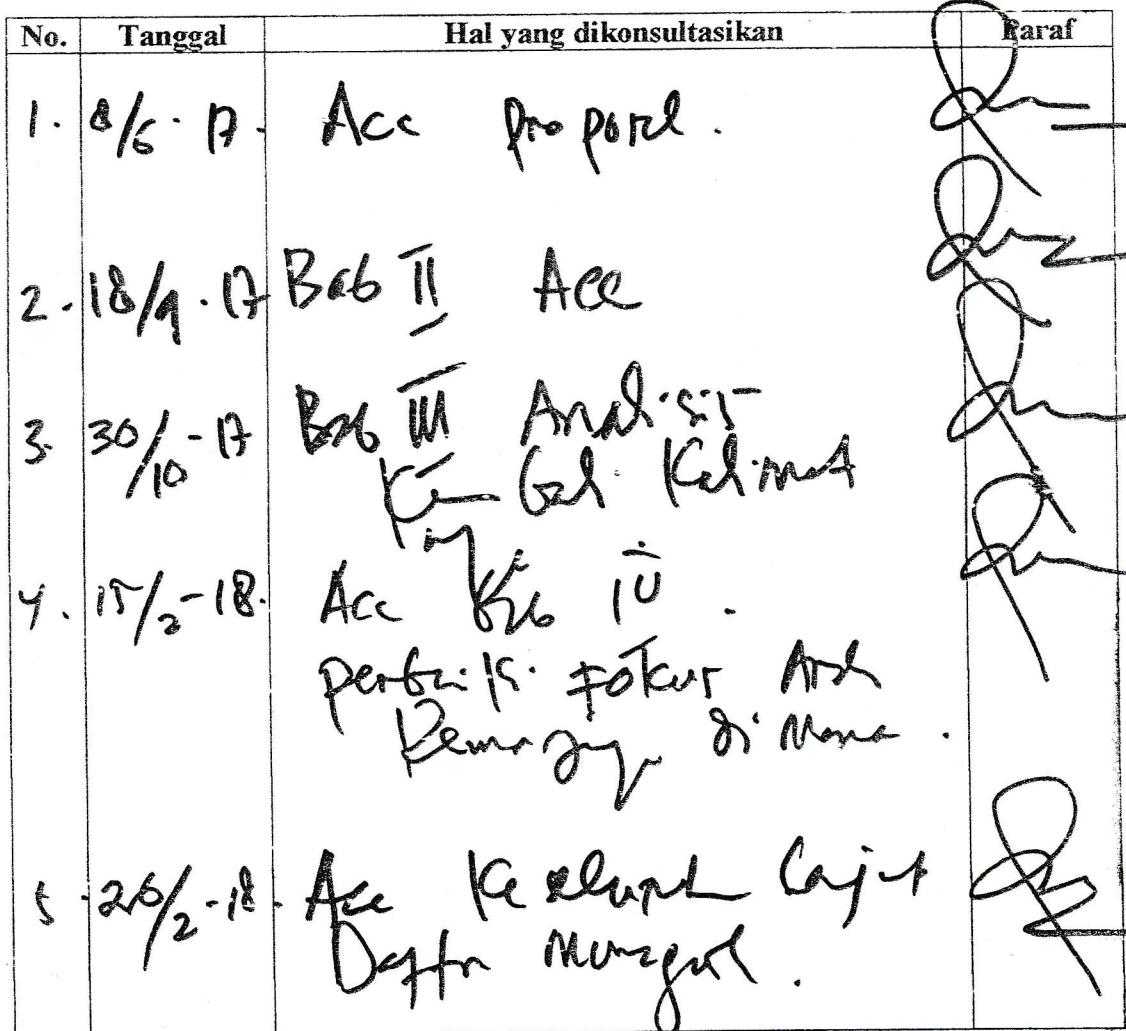 No. Tanggal Hal yang dikonsultasikan Paraf
1. 8/6 · 17 · Acc proposal .
2. 18/9 · 17 Bab II Acc
3. 30/10 - 17 Bab III Analisis
Kalimat
4. 15/2 - 18. Acc Bab IV .
perbaiki Fokus Arah
di Mana .
5. 26/2 - 18. Acc Keseluruhan Lanjut
Daftar Munaqosah .